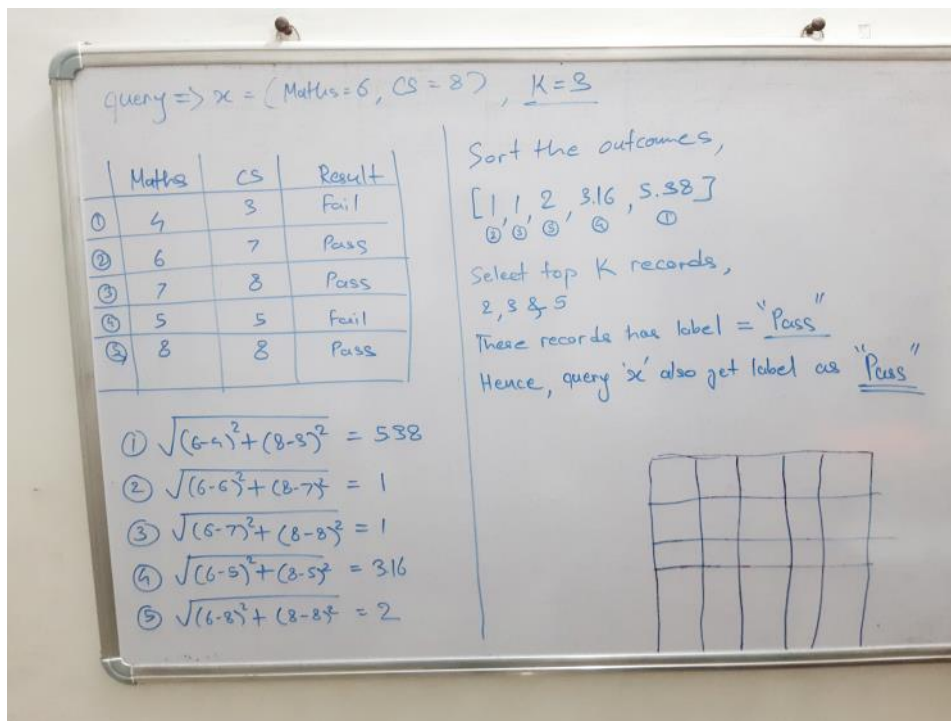 query => x = (Maths = 6, CS = 8), K=3
Maths CS Result
① 4 3 Fail
② 6 7 Pass
③ 7 8 Pass
④ 5 5 Fail
⑤ 8 8 Pass
① √(6-4)²+(8-3)² = 5.38
② √(6-6)²+(8-7)² = 1
③ √(6-7)²+(8-8)² = 1
④ √(6-5)²+(8-5)² = 3.16
⑤ √(6-8)²+(8-8)² = 2
Sort the outcomes,
[1, 1, 2, 3.16, 5.38]
② ③ ⑤ ④ ①
Select top K records,
2, 3 & 5
These records has label = "Pass"
Hence, query 'x' also get label as "Pass"